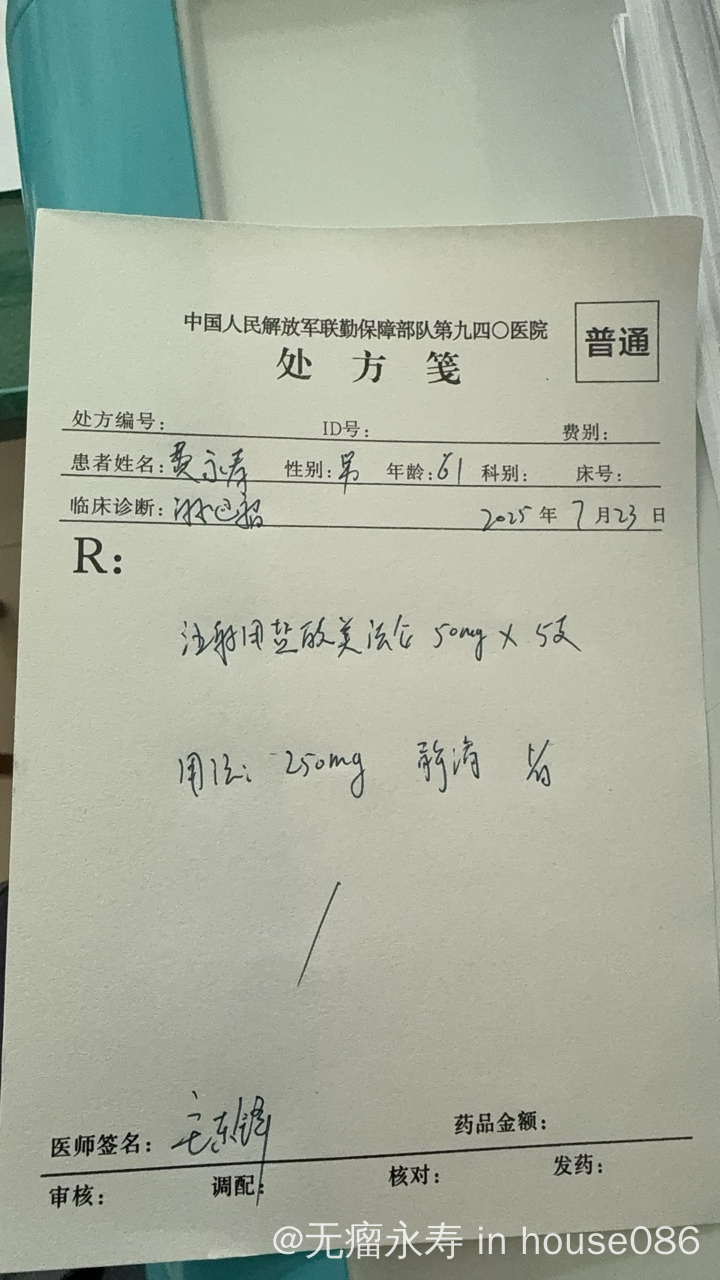 中国人民解放军联勤保障部队第九四〇医院
普通
处方笺
处方编号: ID号: 费别:
患者姓名:黄永寿 性别:男 年龄:61 科别: 床号:
临床诊断:淋巴瘤 2025年7月23日
R:
注射用盐酸美法仑 50mg × 5支
用法: 250mg 静滴
医师签名: 药品金额:
审核: 调配: 核对: 发药:
@无瘤永寿 in house086